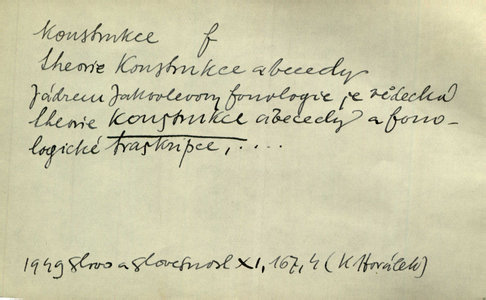 Konstrukce f
theorie Konstrukce abecedy
Jádrem Jakovlevovy fonologie je vědecká
theorie konstrukce abecedy a fono-
logické traskripce, ....
1949 Slovo a slovesnost XI, 167, 4 (K Horálek)